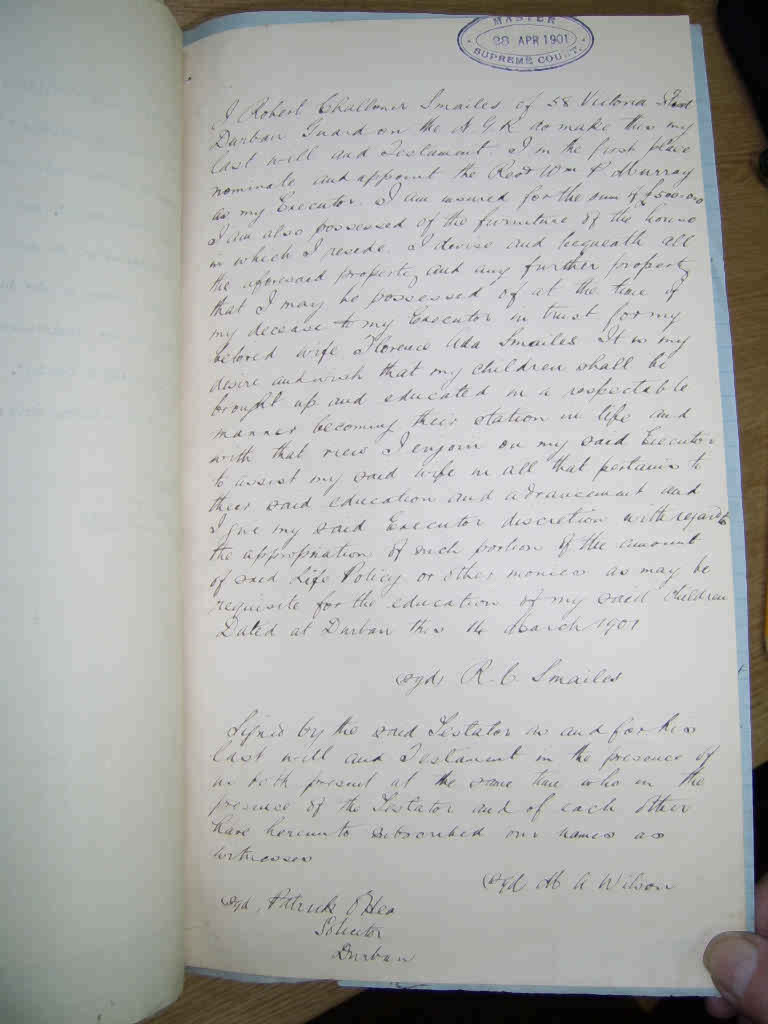 MASTER
28 APR 1901
SUPREME COURT
I Robert Challoner Smailes of 58 Victoria Street
Durban Guard on the N.G.R. do make this my
last will and Testament I in the first place
nominate and appoint the Revd Wm P Murray
as my Executor. I am insured for the sum of £500-0-0
I am also possessed of the furniture of the house
in which I reside. I devise and bequeath all
the aforesaid property and any further property
that I may be possessed of at the time of
my decease to my Executor in trust for my
beloved wife Florence Ada Smailes It is my
desire and wish that my children shall be
brought up and educated in a respectable
manner becoming their station in life and
with that view I enjoin on my said Executor
to assist my said wife in all that pertains to
their said education and advancement and
I give my said Executor discretion with regard to
the appropriation of such portion of the amount
of said Life Policy or other monies as may be
requisite for the education of my said children
Dated at Durban this 14 March 1901
sgd, R. C Smailes
Signed by the said Testator as and for his
last will and Testament in the presence of
us both present at the same time who in the
presence of the Testator and of each other
have hereunto subscribed our names as
witnesses
sgd. H A Wilson
sgd, Patrick O'Hea
Solicitor
Durban